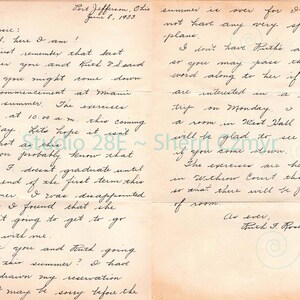 Port Jefferson, Ohio
June 8, 1933
here I am!
remember that last
you and Ruth I said
you might come down
commencement at Miami
summer. The exercises
at 10:00 a.m. this coming
day. Let's hope it isn't
hot as this.
you probably know that
I doesn't graduate until
end of the first term this
summer. I was disappointed
I found that she
isn't going to get to go
with me.
you and Ruth going
this summer? I had
drawn my reservation
may be sorry before the
summer is over for I
not have any very
plans.
I don't have Ruth's
so you may pass the
word along to her if
are interested in a
trip on Monday
a room in West Hall
will be glad to see
if you come down.
The exercises are held
in Withrow Court this
so that there will be
of room.
As ever,
Ruth F. Ross
Studio 28E ~ Sherri C2myr